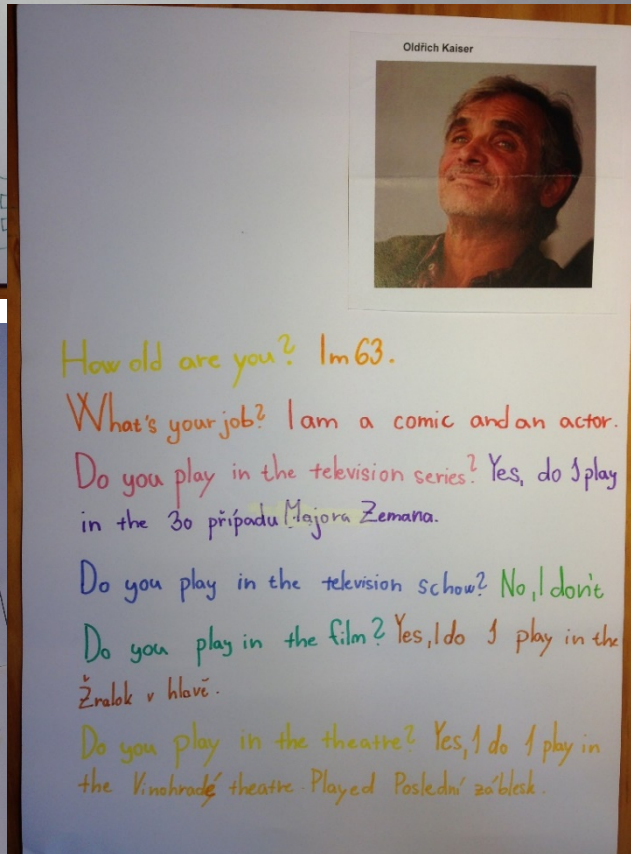 Oldřich Kaiser
How old are you? Im 63.
What's your job? I am a comic and an actor.
Do you play in the television series? Yes, do I play
in the 30 případu Majora Zemana.
Do you play in the television schow? No, I don't
Do you play in the film? Yes, I do I play in the
Žralok v hlavě.
Do you play in the theatre? Yes, I do I play in
the Vinohradé theatre. Played Poslední záblesk.